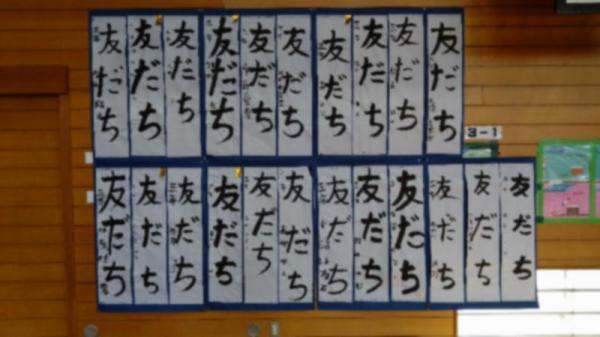 友だち
友だち
友だち
友だち
友だち
友だち
友だち
友だち
友だち
友だち
3-1
友だち
友だち
友だち
友だち
友だち
友だち
友だち
友だち
友だち
友だち
友だち
友だち